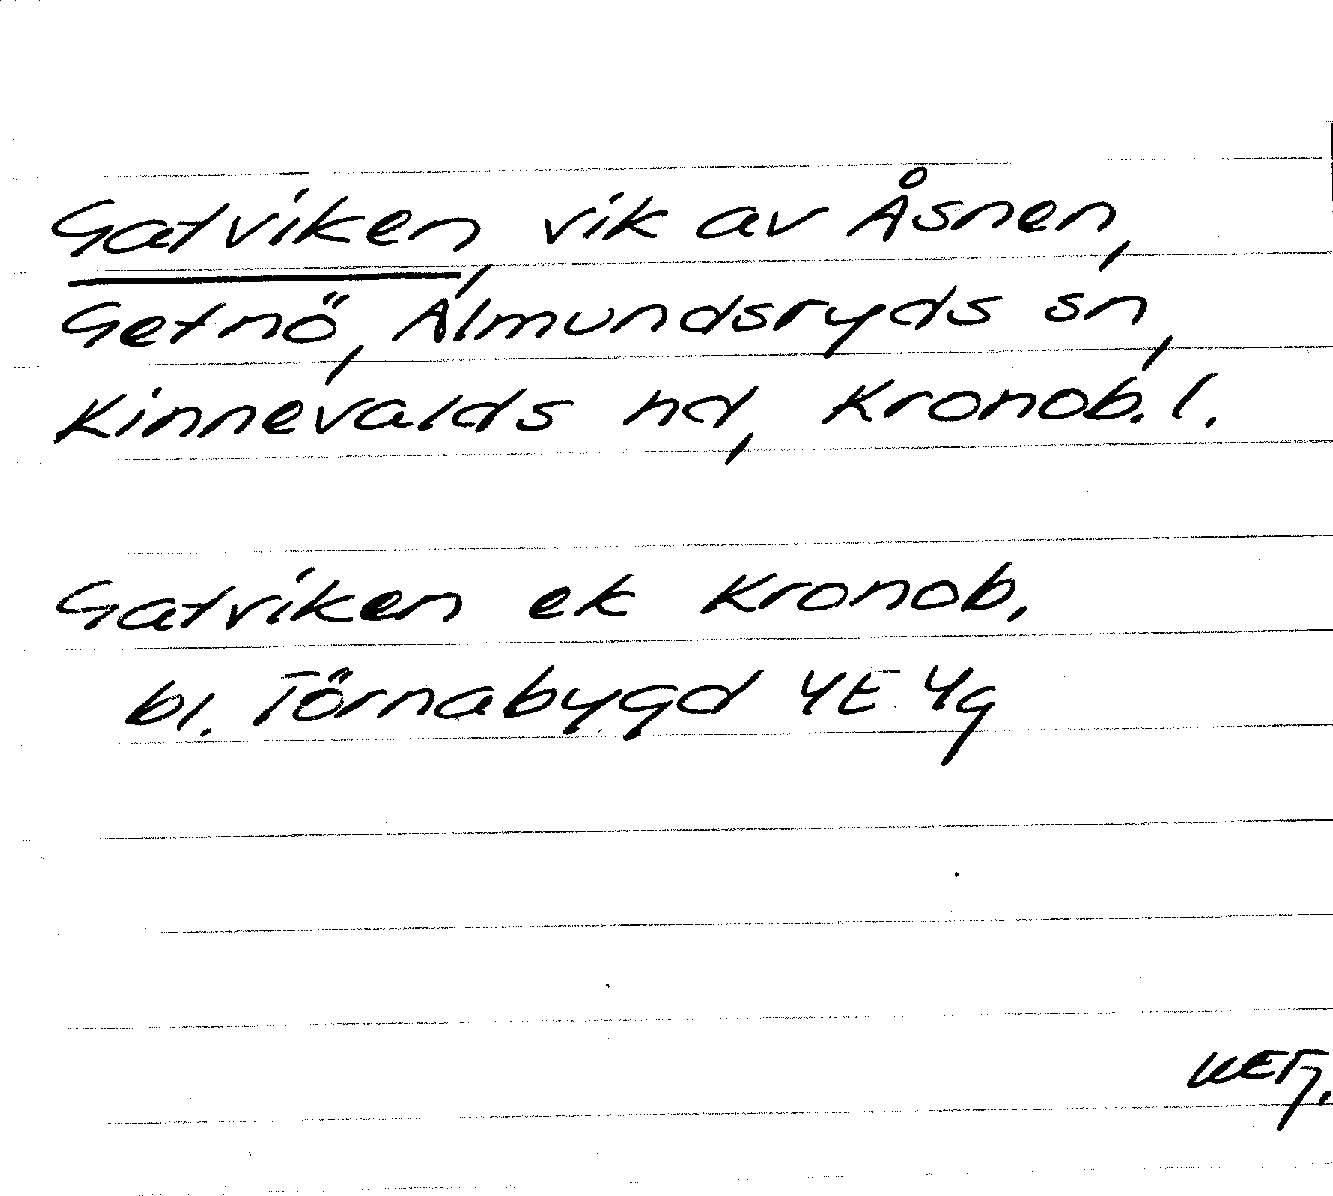 Gatviken, vik av Åsnen,
Getnö, Almundsryds sn,
Kinnevalds hd, Kronob. l.
Gatviken ek Kronob.
bl. Törnabygd 4E 4g